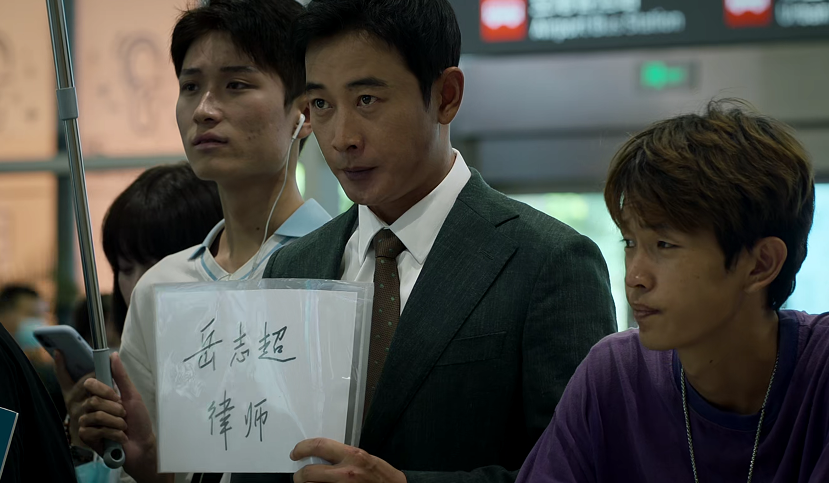 Airport Bus Station
岳志超
律师